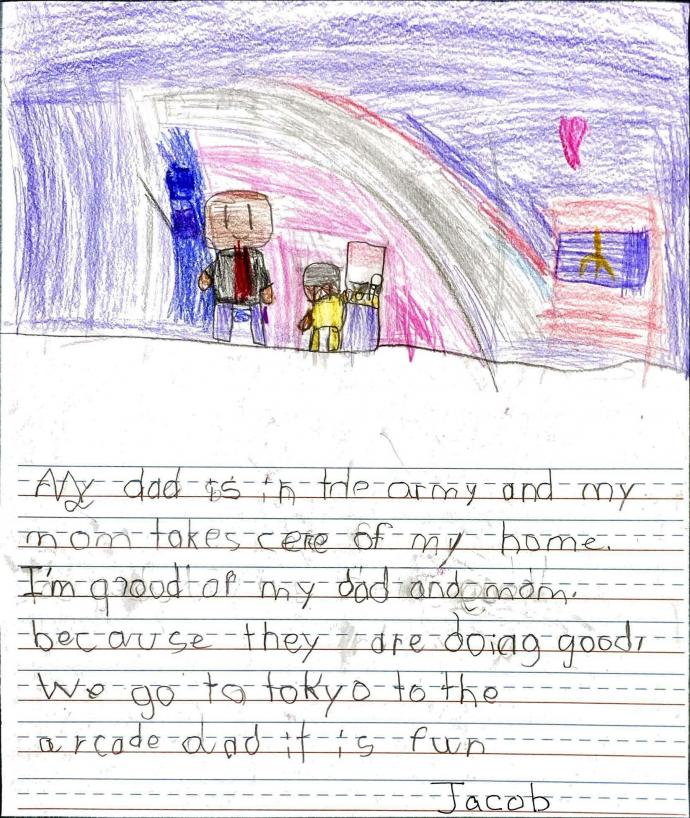 My dad is in tde army and my
mom takes cere of my home.
I'm qrood of my dad and mom.
because they are doing good,
We go to tokyo to the
arcade dnd it is fun
Jacob